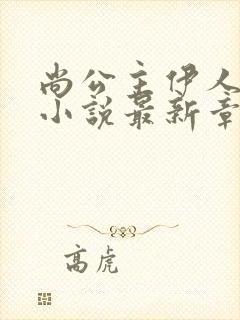 尚公主伊人
小说最新章
高虎